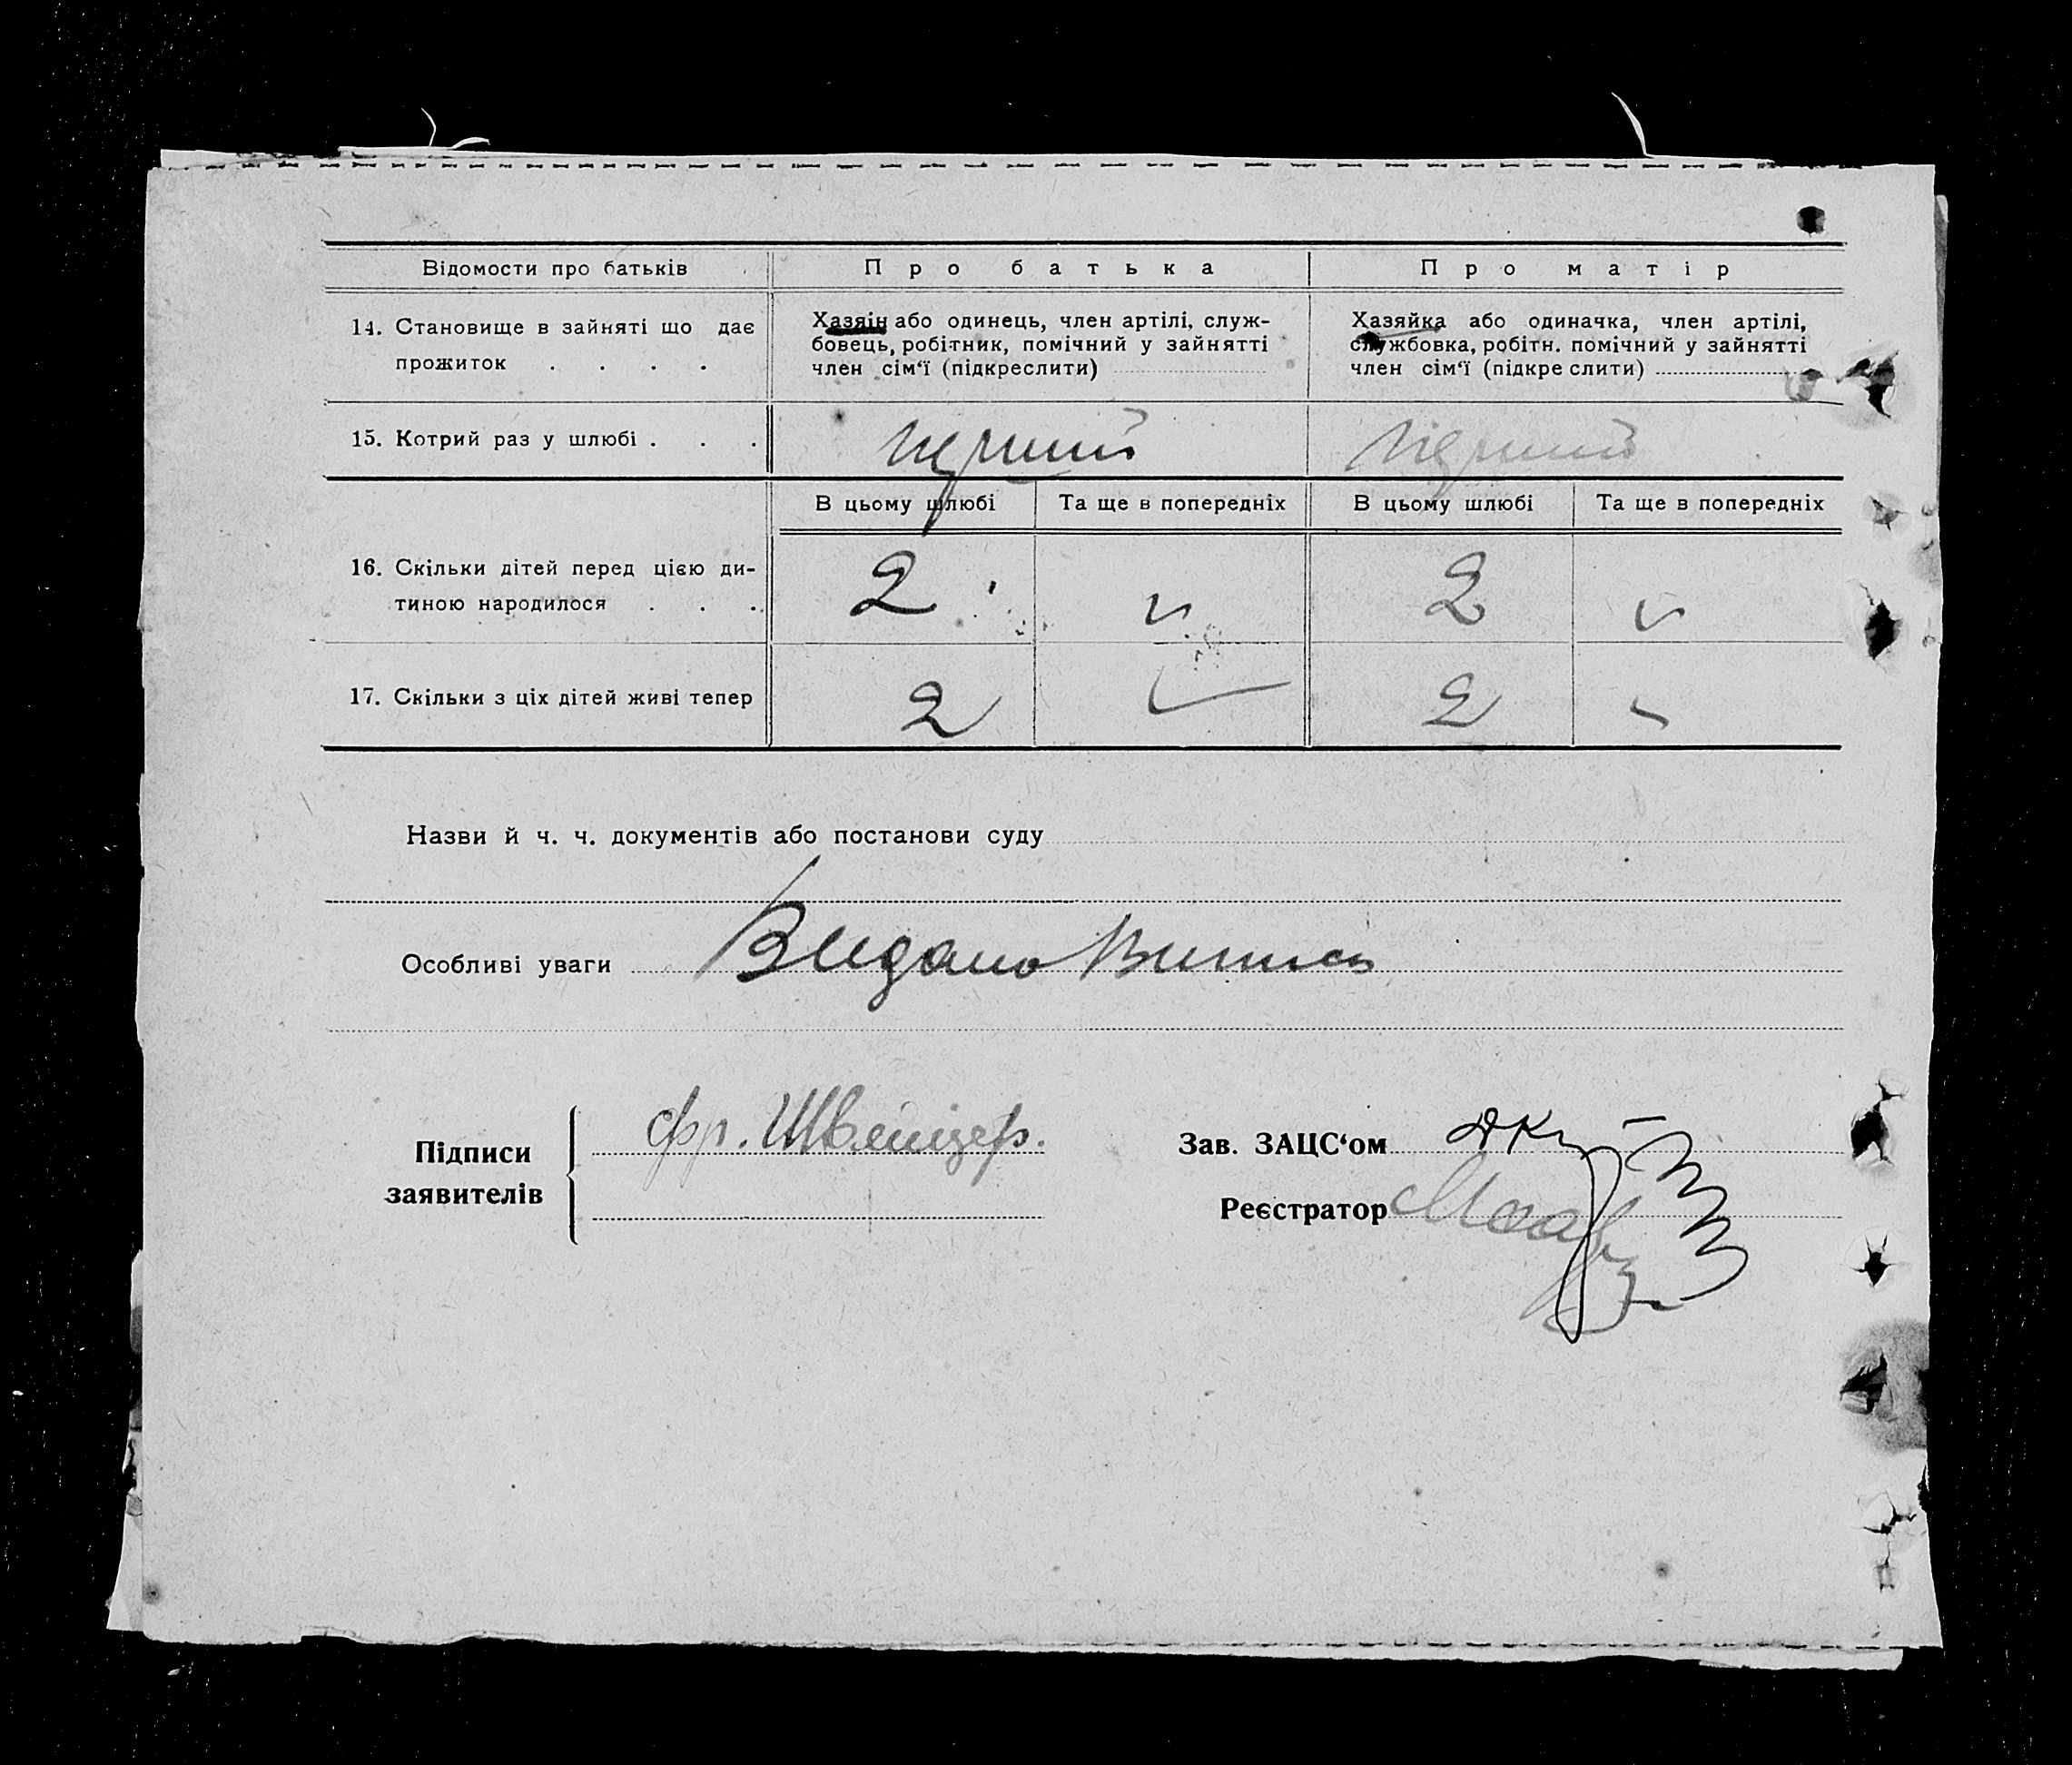 Відомости про батьків Про батька Про матір
14. Становище в зайняті що дає
прожиток . . . .
Хазяїн або одинець, член артілі, служ-
бовець, робітник, помічний у зайнятті
член сім‘ї (підкреслити)
Хазяйка або одиначка, член артілі,
службовка, робітн. помічний у зайнятті
член сім‘ї (підкре слити)
15. Котрий раз у шлюбі . . . перший перший
В цьому шлюбі Та ще в попередніх В цьому шлюбі Та ще в попередніх
16. Скільки дітей перед цією ди-
тиною народилося . . . 2 2
17. Скільки з ціх дітей живі тепер 2 2
Назви й ч. ч. документів або постанови суду
Особливі уваги Видано Випись
Підписи
заявителів
фр. Швейцер.
Зав. ЗАЦС‘ом
Реєстратор